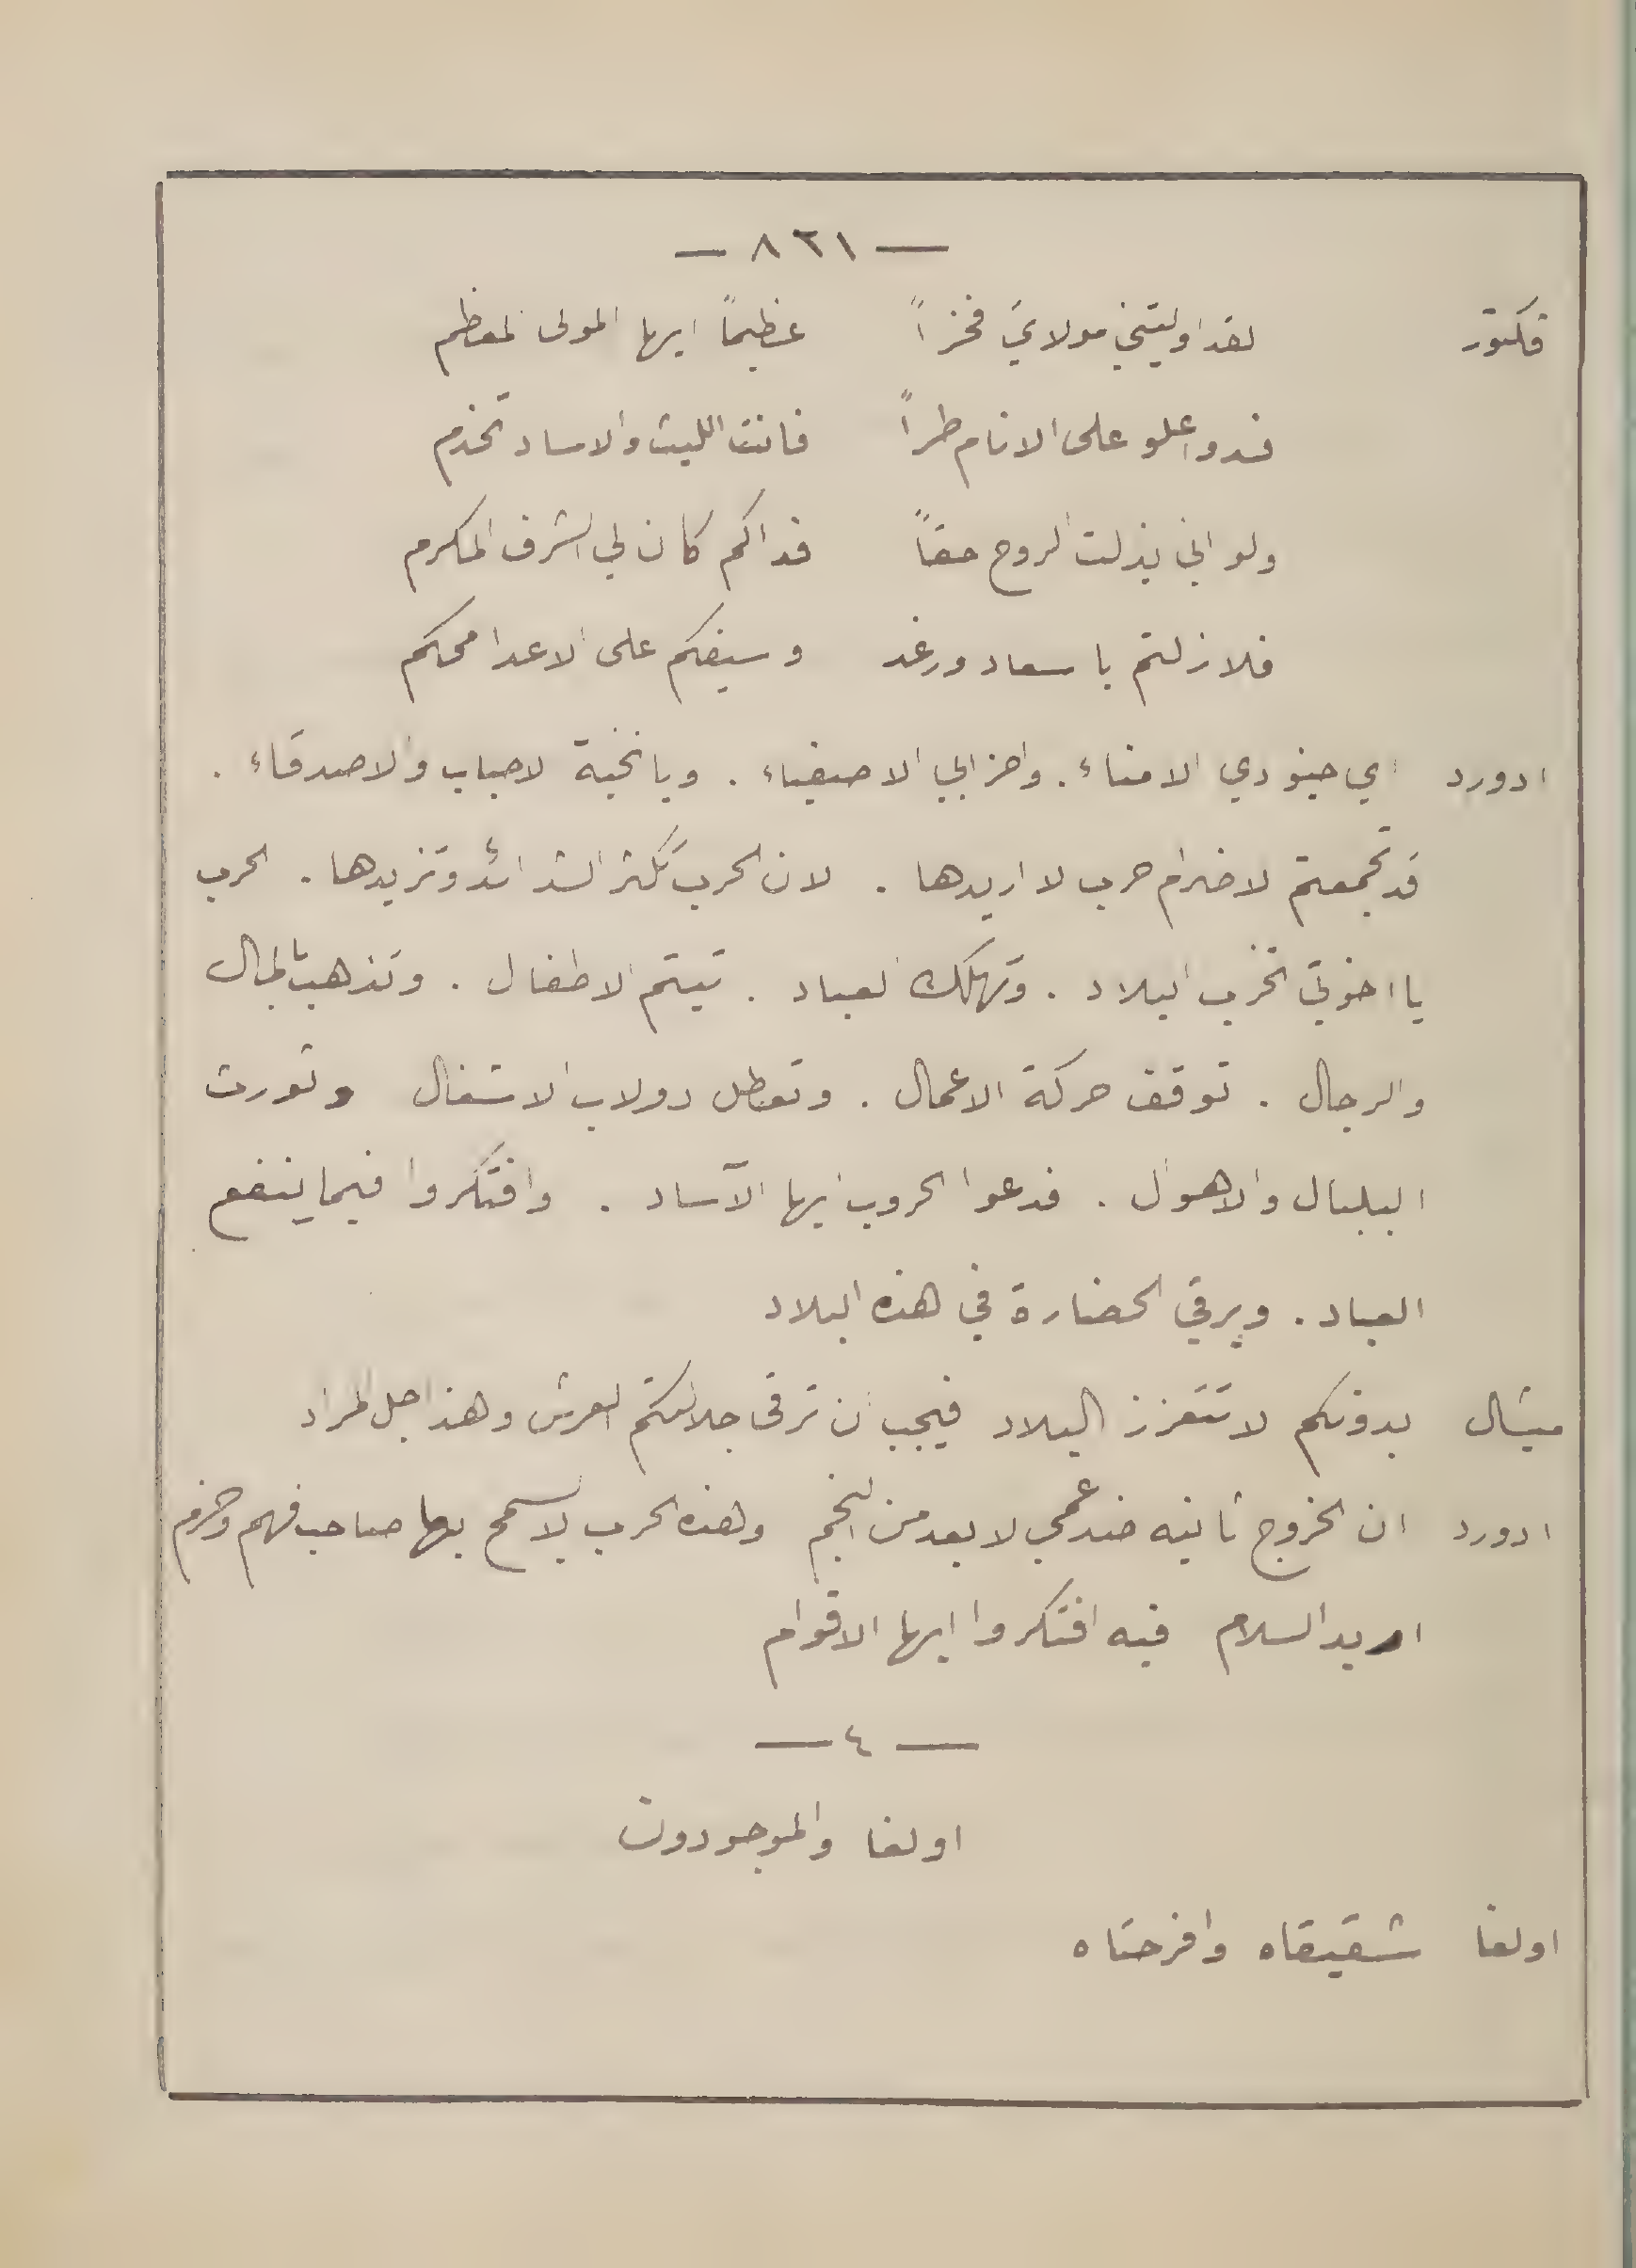 — ٨٢١ —
فكتور لقد اوليتني مولايَ فخراً عظيماً ايها المولى المعظم
فسد واعلو على الانام طراً فانت الليث والاساد تخدم
ولو اني بذلت الروح حقاً فداكم كان لي الشرف المكرم
فلا زلتم باسعاد ورغد وسيفكم على الاعدا محكم
ادورد اي جنودي الامناء . واحزابي الاصفياء . ويا نخبة الاحباب والاصدقاء .
قد تجمعتم لاضرام حرب لا اريدها . لان الحرب تكثر الشدائد وتزيدها . الحرب
يا اخوتي تخرب البلاد . وتهلك العباد . تيتم الاطفال . وتذهب بالمال
والرجال . توقف حركة الاعمال . وتعطل دولاب الاشغال وتورث
البلبال والاهوال . فدعوا الحروب ايها الآساد . وافتكروا فيما ينفع
العباد . ويرقي الحضارة في هذه البلاد
ميشال بدونكم لا تتعزز البلاد فيجب ان ترقى جلالتكم العرش وهذا جل المراد
ادورد ان الخروج ثانيه ضد عمي لابعد من النجم وهذه الحرب لا يسمح بها صاحب فهم وحزم
اريد السلام فيه افتكروا ايها الاقوام
— ٤ —
اولغا والموجودون
اولغا شقيقاه وافرحتاه